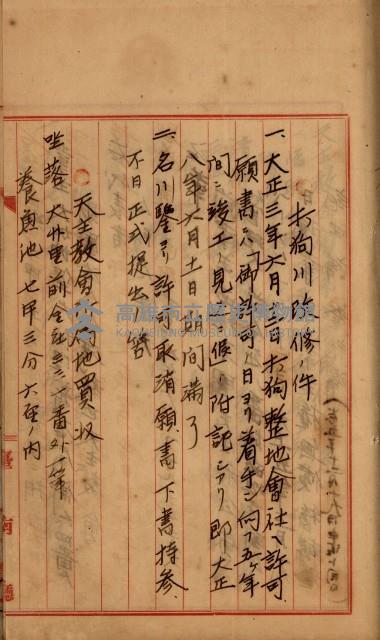 打狗川改修ノ件
一、大正三年六月三日打狗整地會社ヘ許可
願書ニハ「御許可ノ日ヨリ着手シ向フ五ヶ年
間ニ竣工ノ見込」ト附記シアリ即大正
八年六月十一日期間滿了
二、名川鑒ヨリ許可取消願書下書持參
不日正式提出ノ筈
天主教會 地買收
坐落 大竹里前金庄三三一番外一筆
養魚池 七甲三分六厘ノ內
臺南廳
高雄市立歷史博物館
KAOHSIUNG MUSEUM OF HISTORY